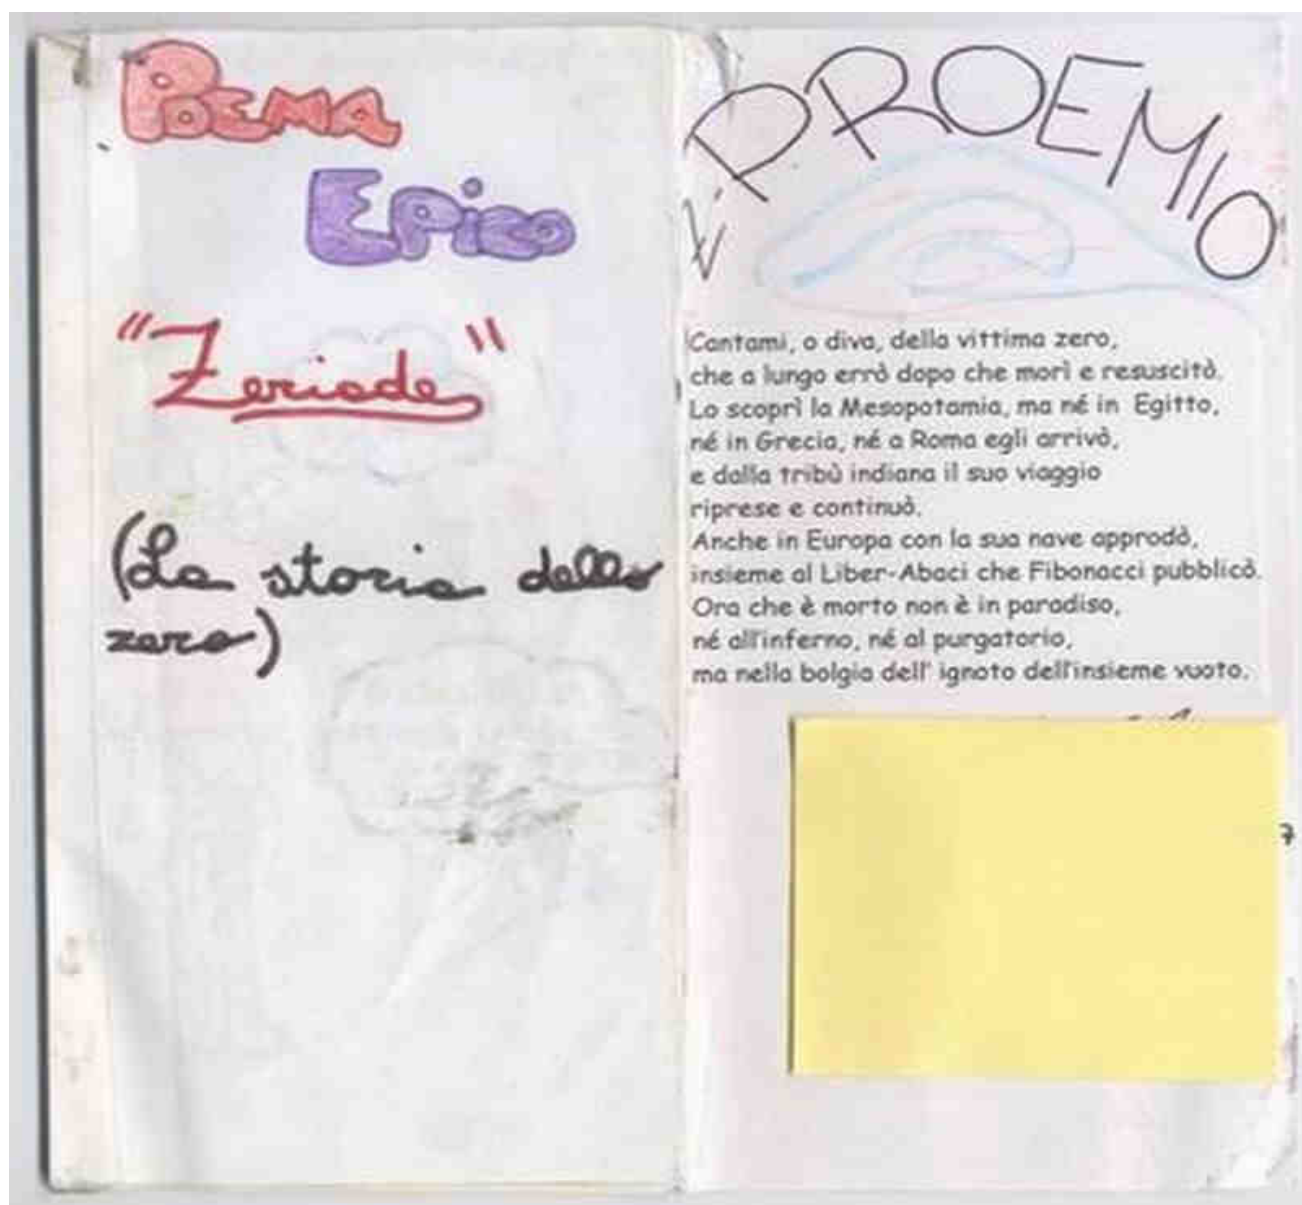 POEMA
EPICO
"Zeriade"
(La storia dello
zero)
PROEMIO
Cantami, o diva, della vittima zero,
che a lungo errò dopo che morì e resuscitò.
Lo scoprì la Mesopotamia, ma né in Egitto,
né in Grecia, né a Roma egli arrivò,
e dalla tribù indiana il suo viaggio
riprese e continuò.
Anche in Europa con la sua nave approdò,
insieme al Liber-Abaci che Fibonacci pubblicò.
Ora che è morto non è in paradiso,
né all'inferno, né al purgatorio,
ma nella bolgia dell' ignoto dell'insieme vuoto.